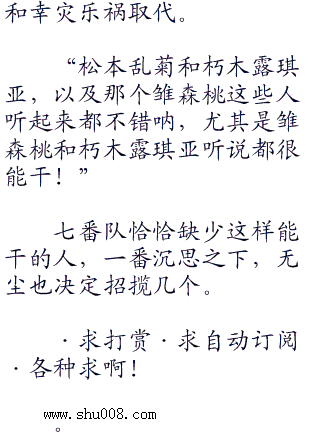 和幸灾乐祸取代。
“松本乱菊和朽木露琪
亚，以及那个雏森桃这些人
听起来都不错呐，尤其是雏
森桃和朽木露琪亚听说都很
能干！”
七番队恰恰缺少这样能
干的人，一番沉思之下，无
尘也决定招揽几个。
·求打赏·求自动订阅
·各种求啊！
www.shu008.com
。